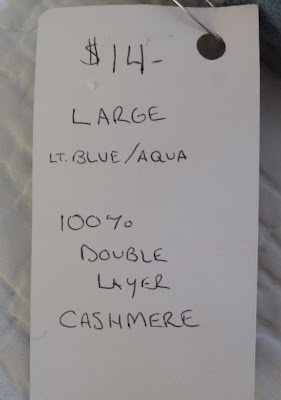 $14-
LARGE
LT. BLUE/AQUA
100%
DOUBLE
LAYER
CASHMERE